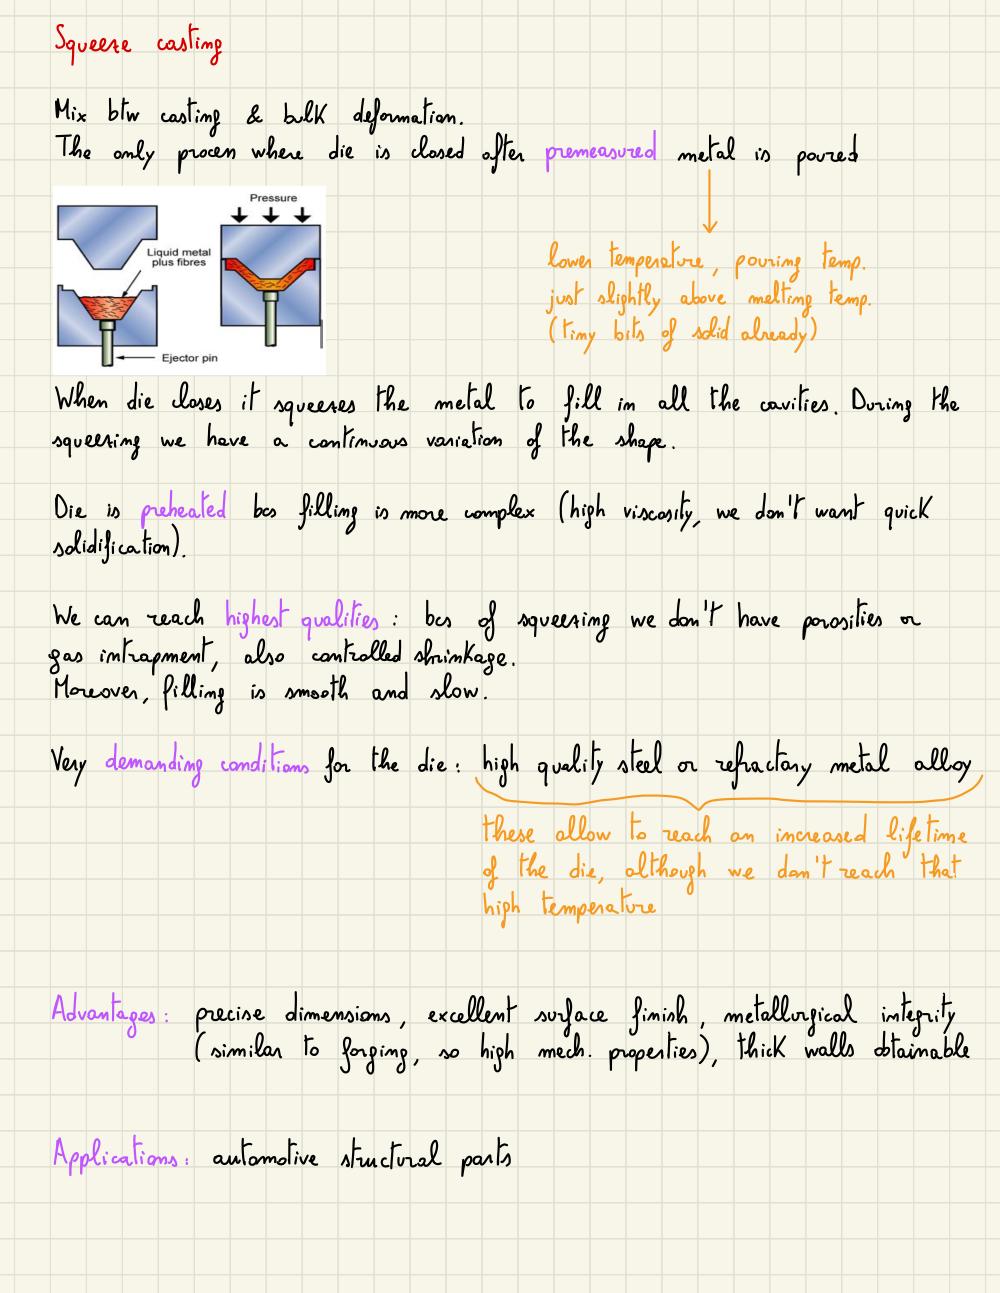 Squeeze casting
Mix btw casting & bulk deformation.
The only process where die is closed after premeasured metal is poured
Pressure
Liquid metal
plus fibres
Ejector pin
lower temperature, pouring temp.
just slightly above melting temp.
(tiny bits of solid already)
When die closes it squeezes the metal to fill in all the cavities. During the
squeezing we have a continuous variation of the shape.
Die is preheated bcs filling is more complex (high viscosity, we don't want quick
solidification).
We can reach highest qualities : bcs of squeezing we don't have porosities or
gas intrapment, also controlled shrinkage.
Moreover, filling is smooth and slow.
Very demanding conditions for the die : high quality steel or refractary metal alloy
these allow to reach an increased lifetime
of the die, although we don't reach that
high temperature
Advantages : precise dimensions, excellent surface finish, metallurgical integrity
(similar to forging, so high mech. properties), thick walls obtainable
Applications : automotive structural parts